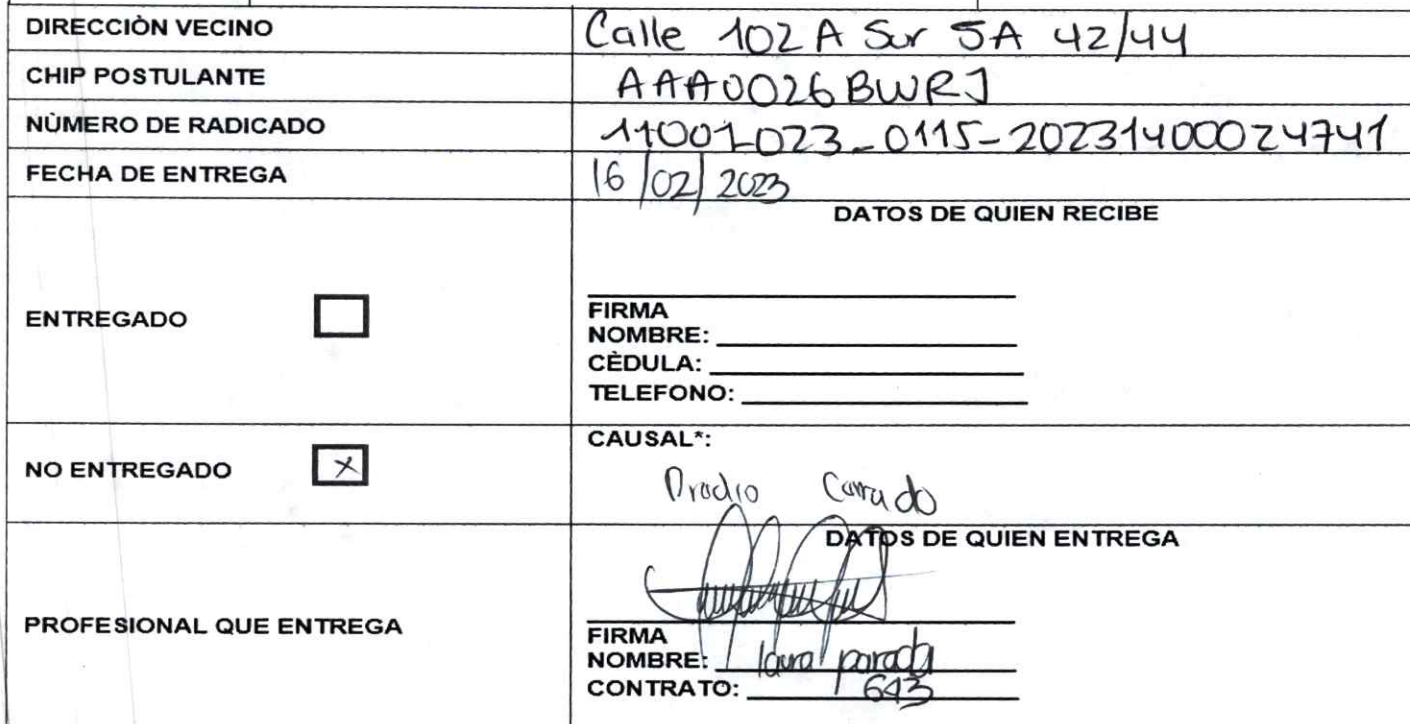 DIRECCIÒN VECINO Calle 102 A Sur 5A 42/44
CHIP POSTULANTE AAA0026BWRJ
NÙMERO DE RADICADO 11001-023-0115-20231400024741
FECHA DE ENTREGA 16/02/2023
DATOS DE QUIEN RECIBE
ENTREGADO
FIRMA
NOMBRE:
CÈDULA:
TELEFONO:
CAUSAL*:
NO ENTREGADO x
Predio Cerrado
DATOS DE QUIEN ENTREGA
PROFESIONAL QUE ENTREGA
FIRMA
NOMBRE: laura parada
CONTRATO: 643